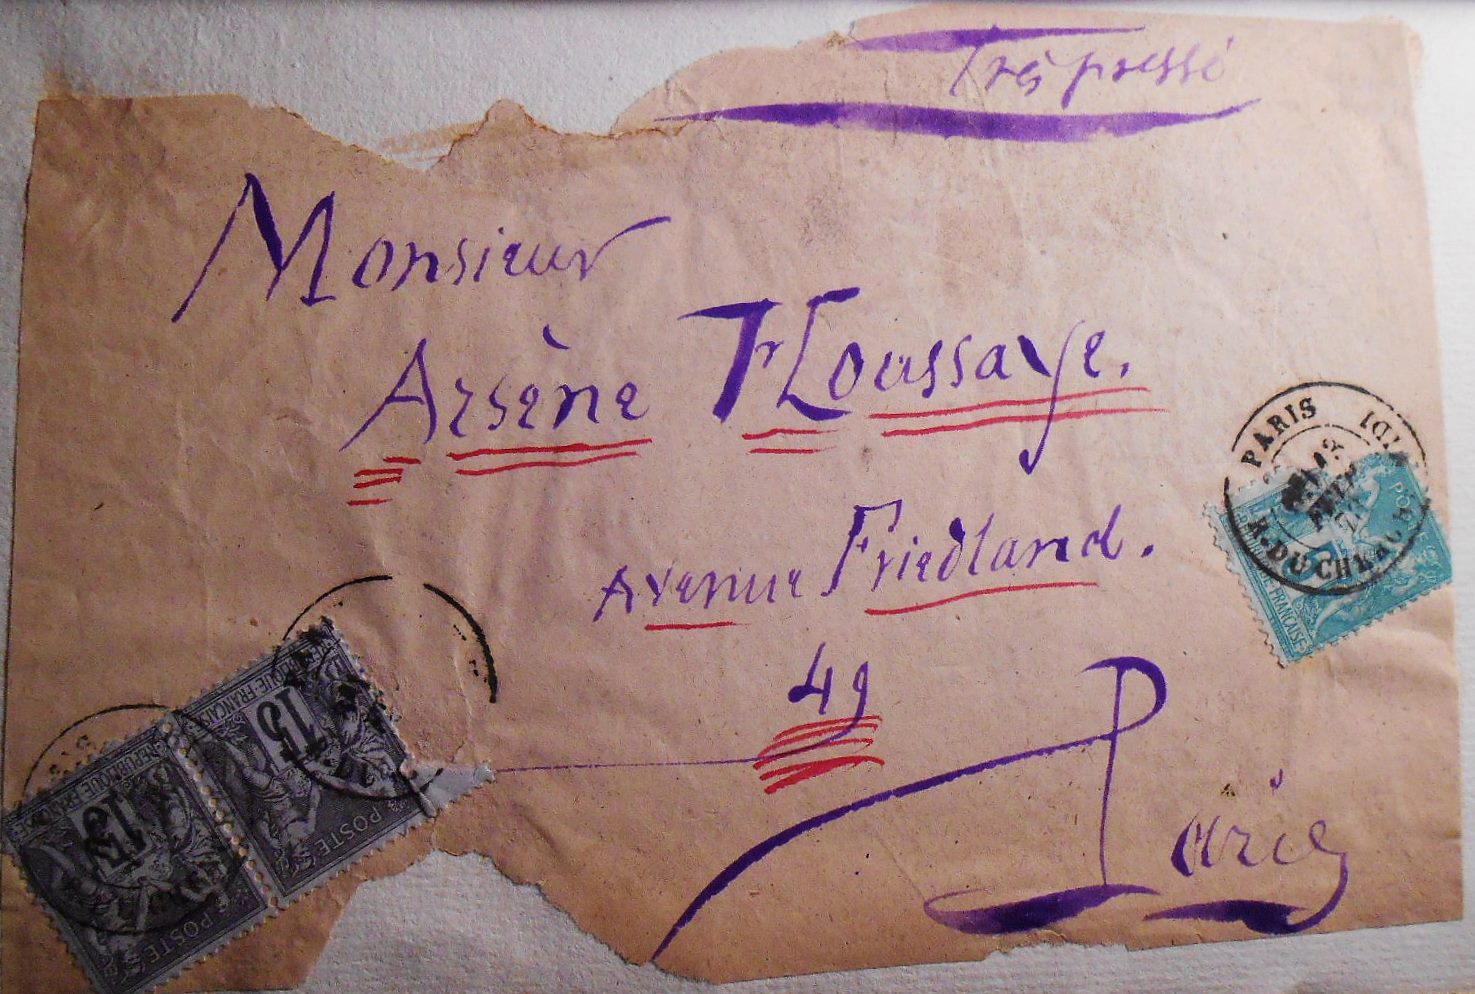 Très pressé
Monsieur
Arsène Houssaye.
Avenue Friedland.
49
Paris
PARIS
R. DU CH
POSTES
FRANÇAISE
15
REPUBLIQUE FRANÇAISE
POSTES
15
REPUBLIQUE FRANÇAISE
POSTES